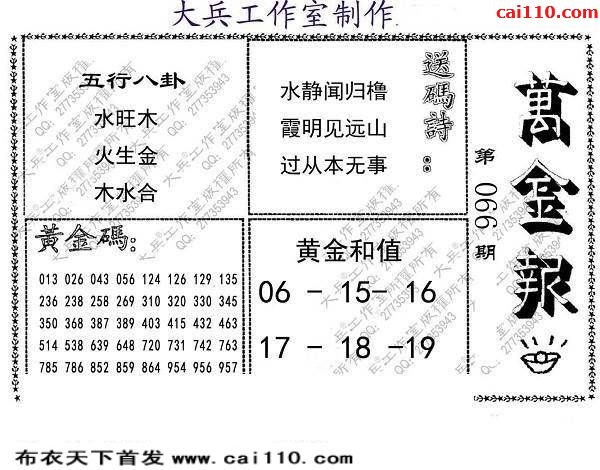 大兵工作室制作
cai110.com
五行八卦
水旺木
火生金
木水合
送碼詩：
水静闻归橹
霞明见远山
过从本无事
萬金報
第066期
黃金碼:
013 026 043 056 124 126 129 135
236 238 258 269 310 320 330 345
350 368 387 389 403 415 432 463
514 538 639 648 720 731 742 763
785 786 852 859 864 954 956 957
黄金和值
06 - 15- 16
17 - 18 -19
大兵工作室版權所有
QQ: 277353943
布衣天下首发 www.cai110.com